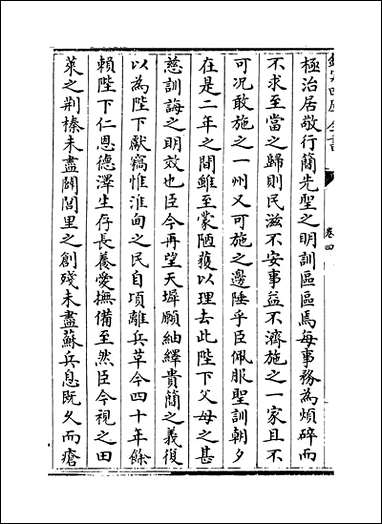 極治居敬行簡先聖之明訓區區焉每事務為煩碎而
不求至當之歸則民滋不安事益不濟施之一家且不
可況敢施之一州又可施之邊陲乎臣佩服聖訓朝夕
在是二年之間雖至蒙陋獲以理去此陛下父母之甚
慈訓誨之明效也臣今再望天墀願紬繹貴簡之義復
以為陛下獻竊惟淮甸之民自頃離兵革今四十年餘
賴陛下仁恩德澤生存長養愛撫備至然臣今視之田
萊之荆榛未盡闢閭里之創殘未盡蘇兵息既久而瘡
欽定四庫全書
卷四